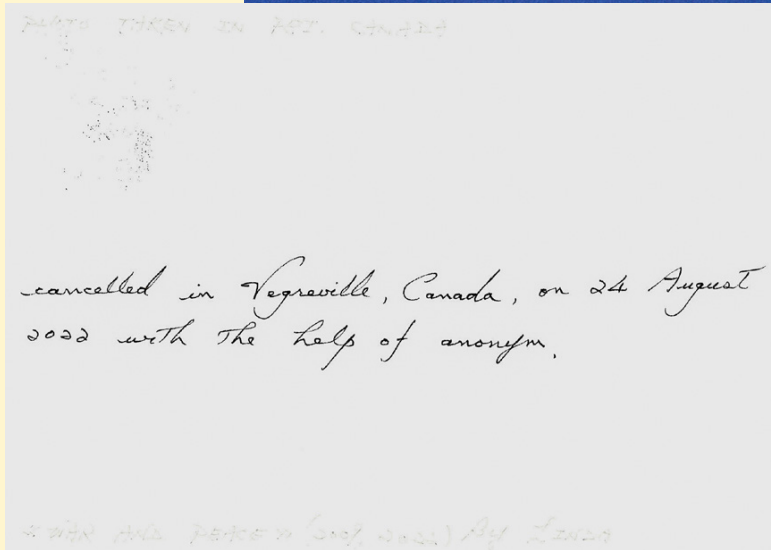 TAKEN IN CANADA
cancelled in Vegreville, Canada, on 24 August
2022 with the help of anonym.
AND PEACE